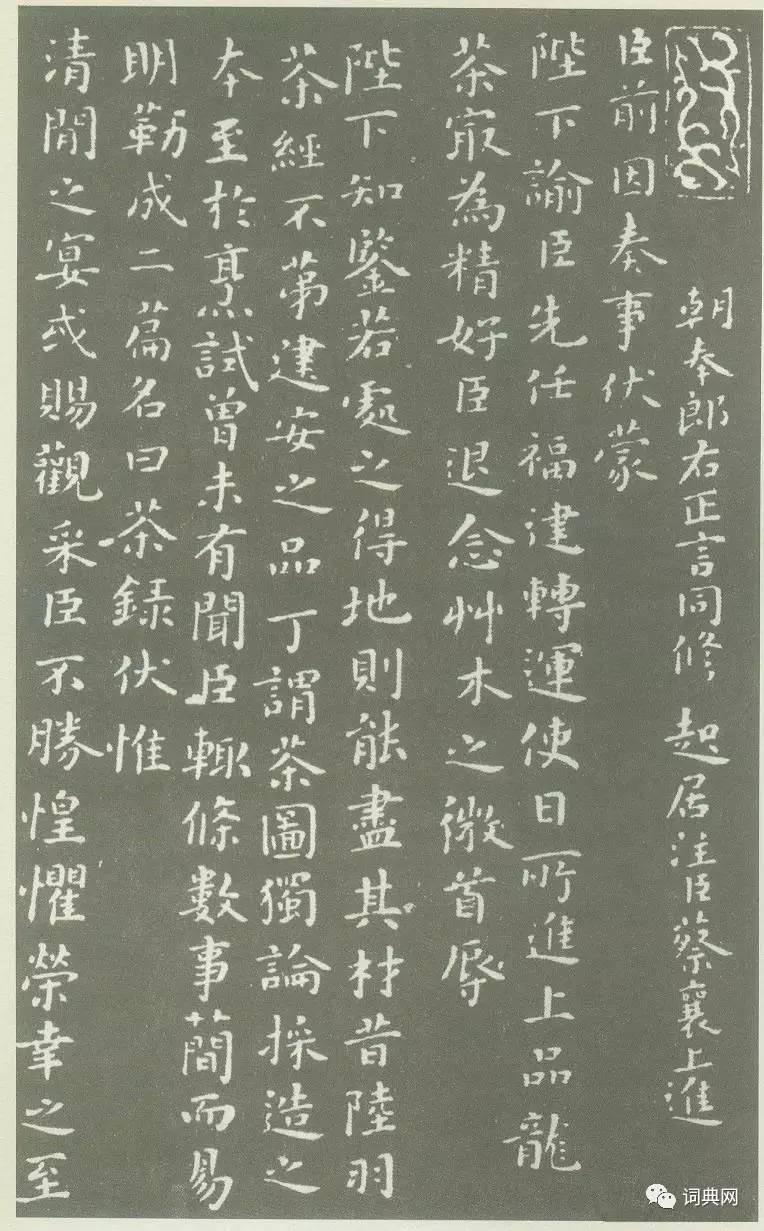 朝奉郎右正言同修起居注臣蔡襄上進
臣前因奏事伏蒙
陛下諭臣先任福建轉運使日所進上品龍
茶㝡為精好臣退念艸木之微首辱
陛下知鑒若處之得地則能盡其材昔陸羽
茶經不苐建安之品丁謂茶圖獨論採造之
夲至於烹試曾未有聞臣輙條數事蕳而易
明勒成二篇名曰茶錄伏惟
清閒之宴或賜觀采臣不勝惶懼榮幸之至
词典网